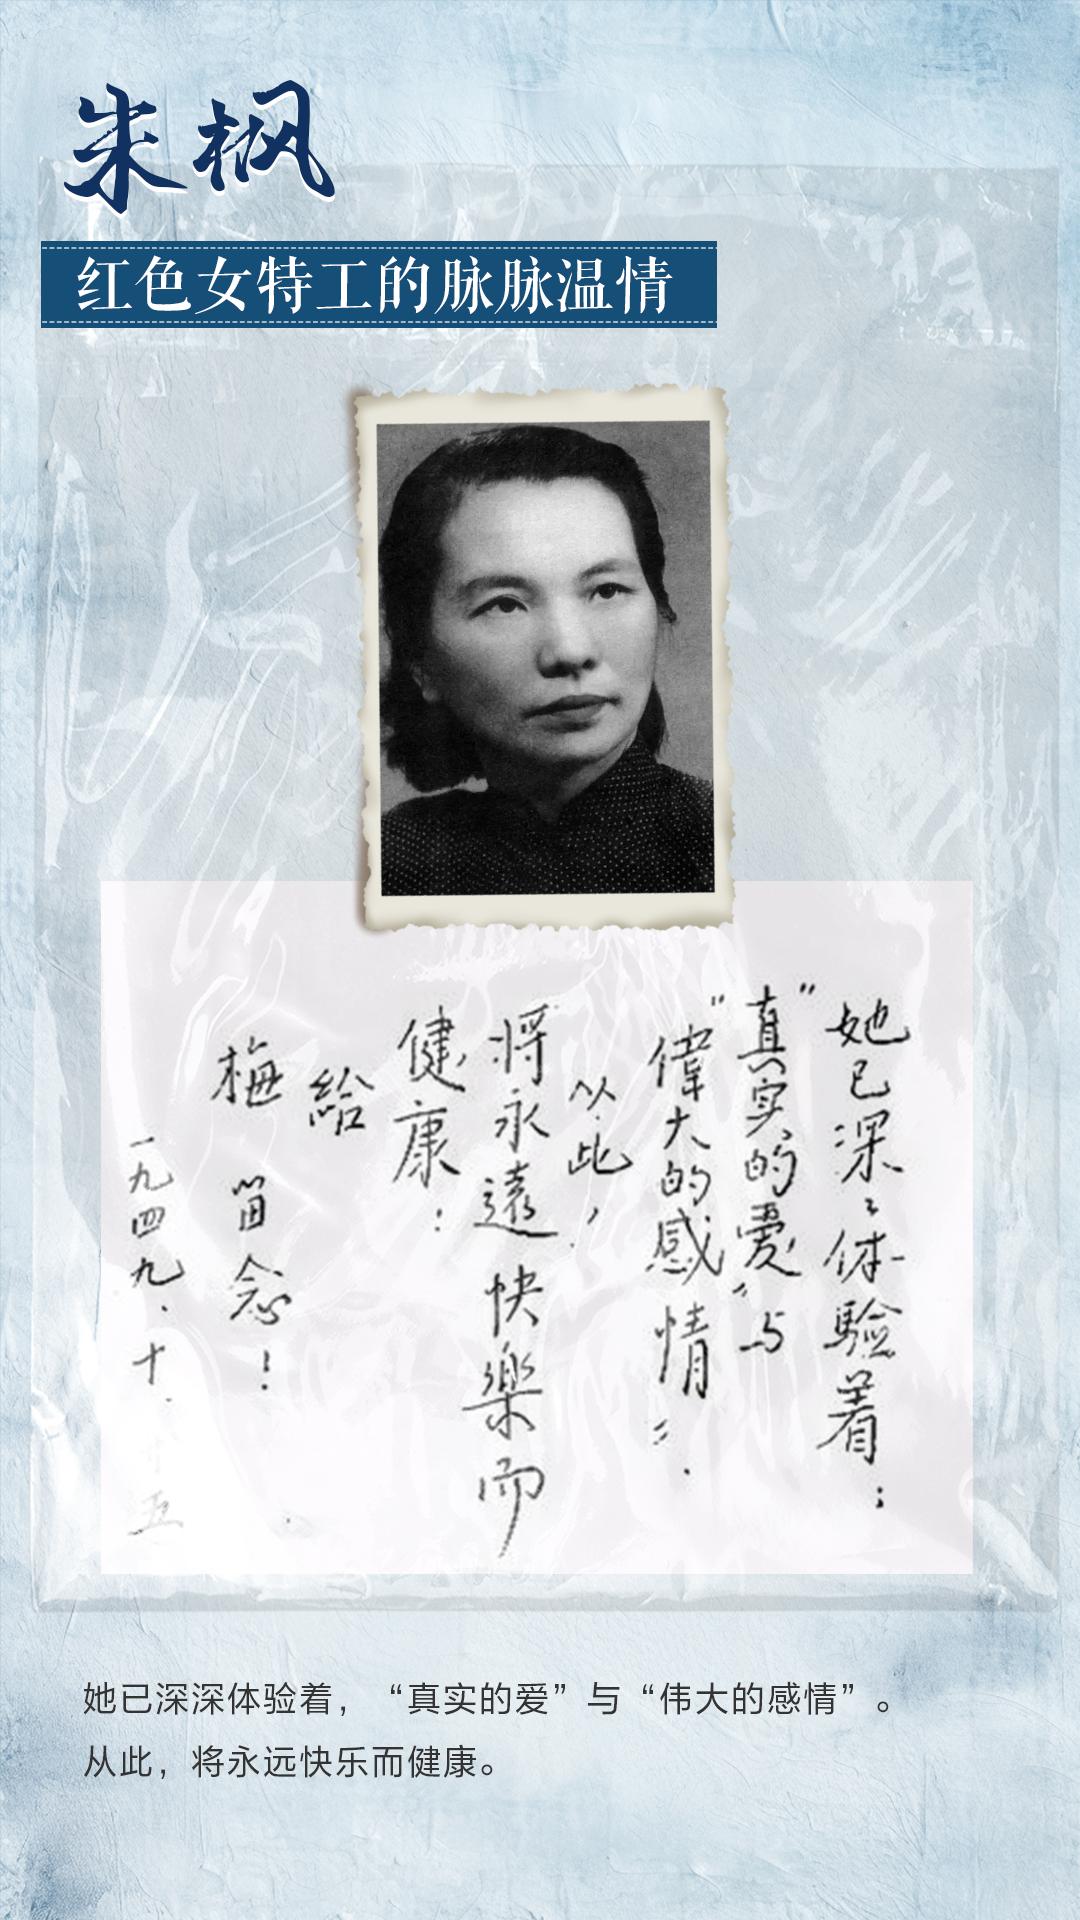 朱枫
红色女特工的脉脉温情
她已深〻体验着：
“真实的爱”与
“偉大的感情”.
从此，
将永遠快樂而
健康：
給
梅 留念！
一九四九.十.
五
她已深深体验着，“真实的爱”与“伟大的感情”。
从此，将永远快乐而健康。